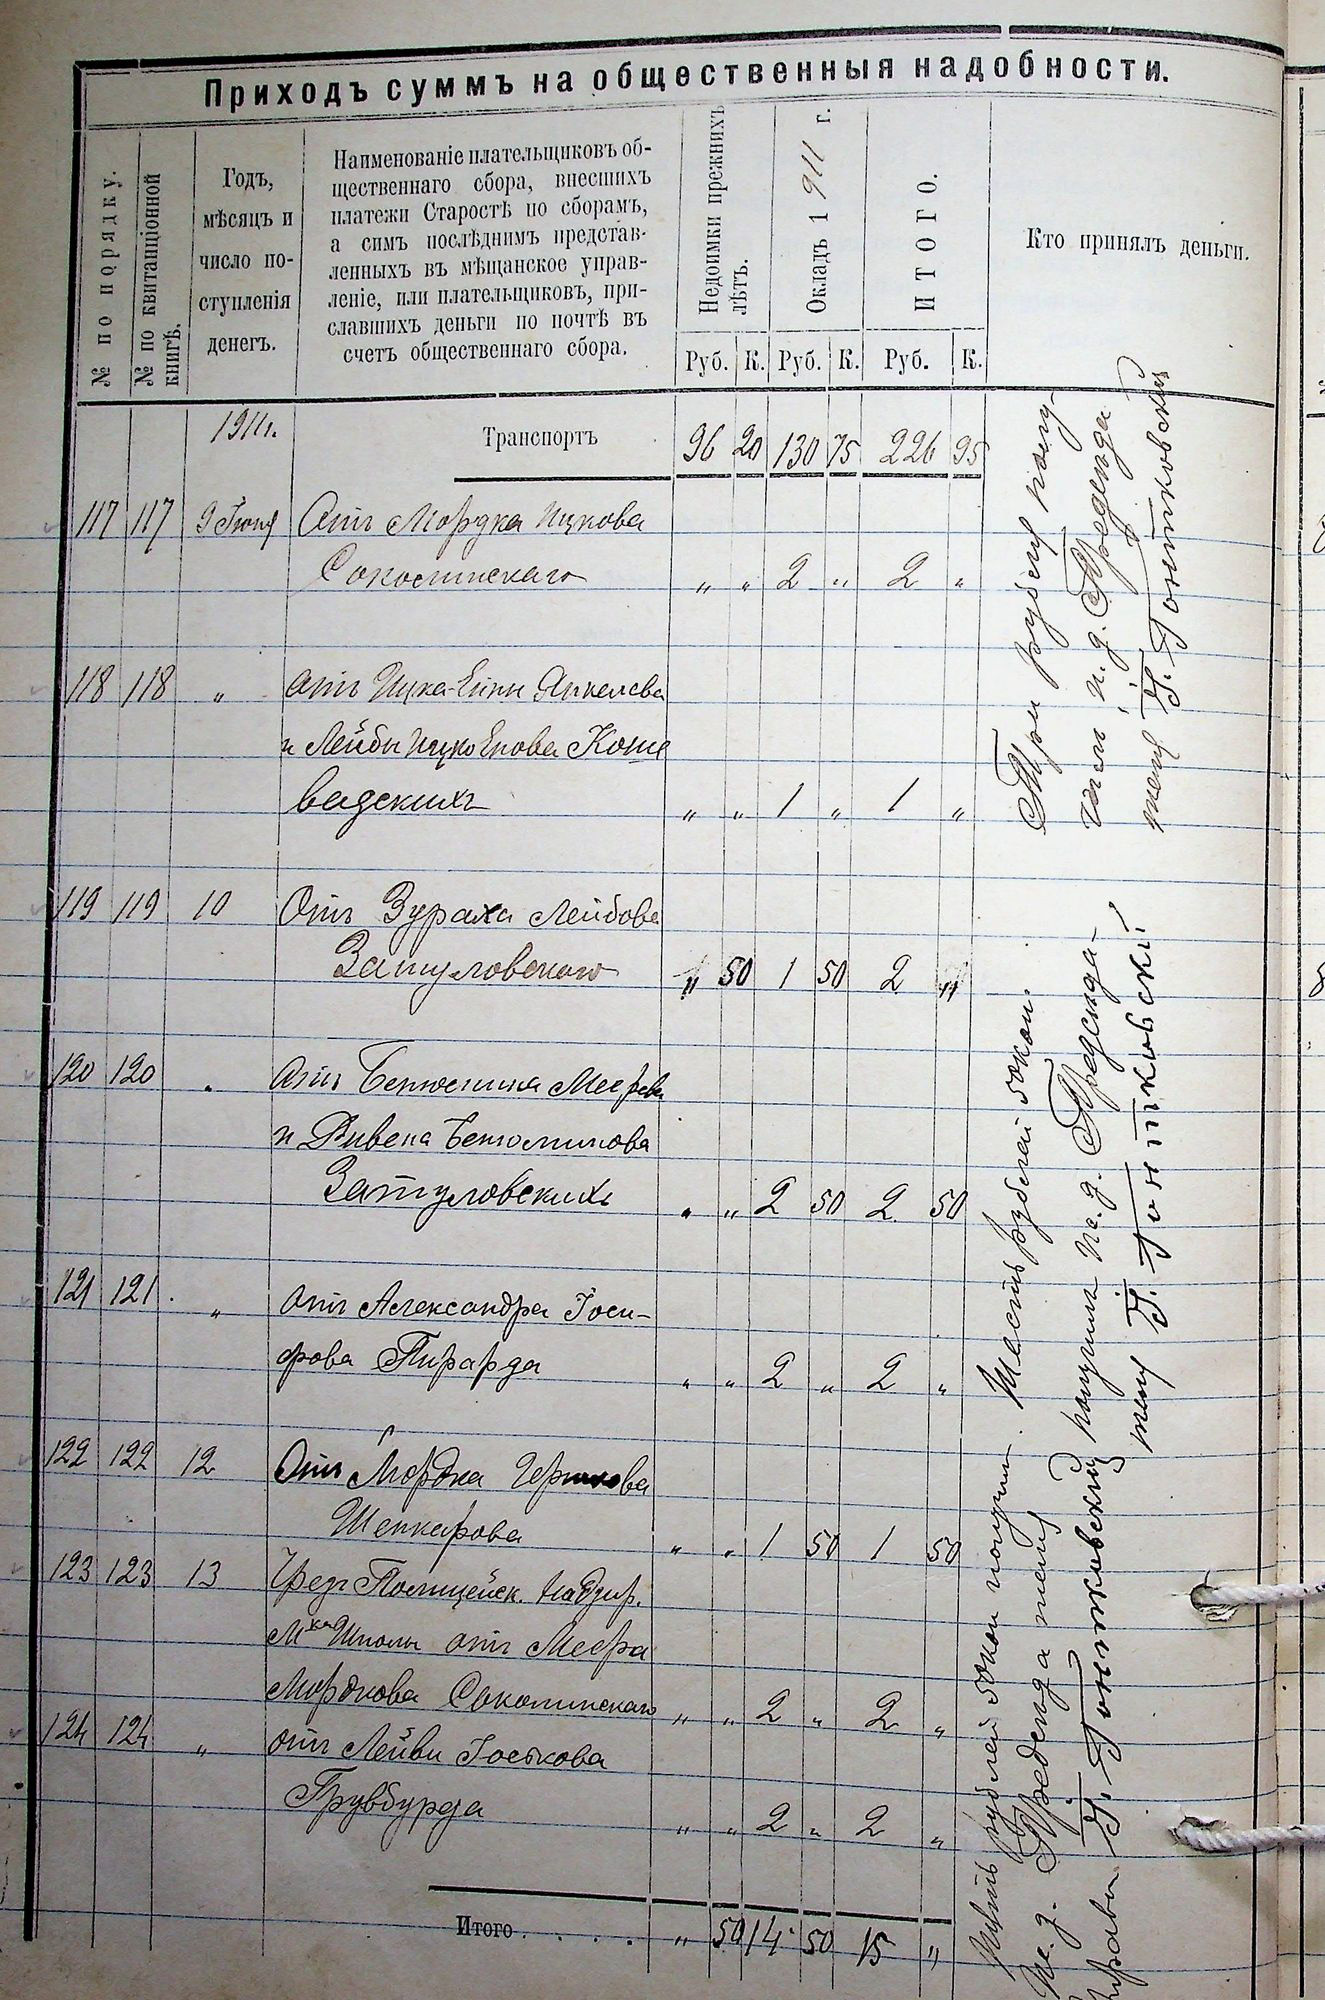 Приходъ суммъ на общественныя надобности.
№ по порядку.
№ по квитанціонной
книгѣ.
Годъ,
мѣсяцъ и
число по-
ступленія
денегъ.
Наименованіе плательщиковъ об-
щественнаго сбора, внесшихъ
платежи Старостѣ по сборамъ,
а симъ послѣднимъ представ-
ленныхъ въ мѣщанское управ-
леніе, или плательщиковъ, при-
славшихъ деньги по почтѣ въ
счетъ общественнаго сбора.
Недоимки прежнихъ
лѣтъ.
Окладъ 1911 г.
ИТОГО.
Кто принялъ деньги.
Руб. К. Руб. К. Руб. К.
1911г. Транспортъ 96 20 130 75 226 95
117 117 9 Іюня Отъ Мордка Ицкова
Соколинскаго „ „ 2 „ 2 „
118 118 „ Отъ Ицка-
и Лейбы Коше
вадскихъ „ „ 1 „ 1 „
119 119 10 Отъ Зураха Лейбова
Затуловскаго „ 50 1 50 2 „
120 120 „ Отъ
и Бенюминова
Затуловскихъ „ „ 2 50 2 50
121 121 „ Отъ Александра Іоси-
фова Пирарда „ „ 2 „ 2 „
122 122 12 Отъ Мордка
Шепкарова „ „ 1 50 1 50
123 123 13 Чрезъ Полицейск. Надзир.
М-ка Шполы отъ Меера
Мордкова Соколинскаго „ „ 2 „ 2 „
124 124 „ Отъ Лейви Іоськова
„ „ 2 „ 2 „
Итого . . . . „ 50 14 50 15 „
Три рубля полу-
чилъ И. д. Предсѣда
теля І. Гонтковскій
Шесть рублей 50коп.
получилъ И. д. Предсѣда-
теля І. Гонтковскій
Пять рублей 50коп получилъ
И. д. Предсѣдателя
Управы І. Гонтковскій